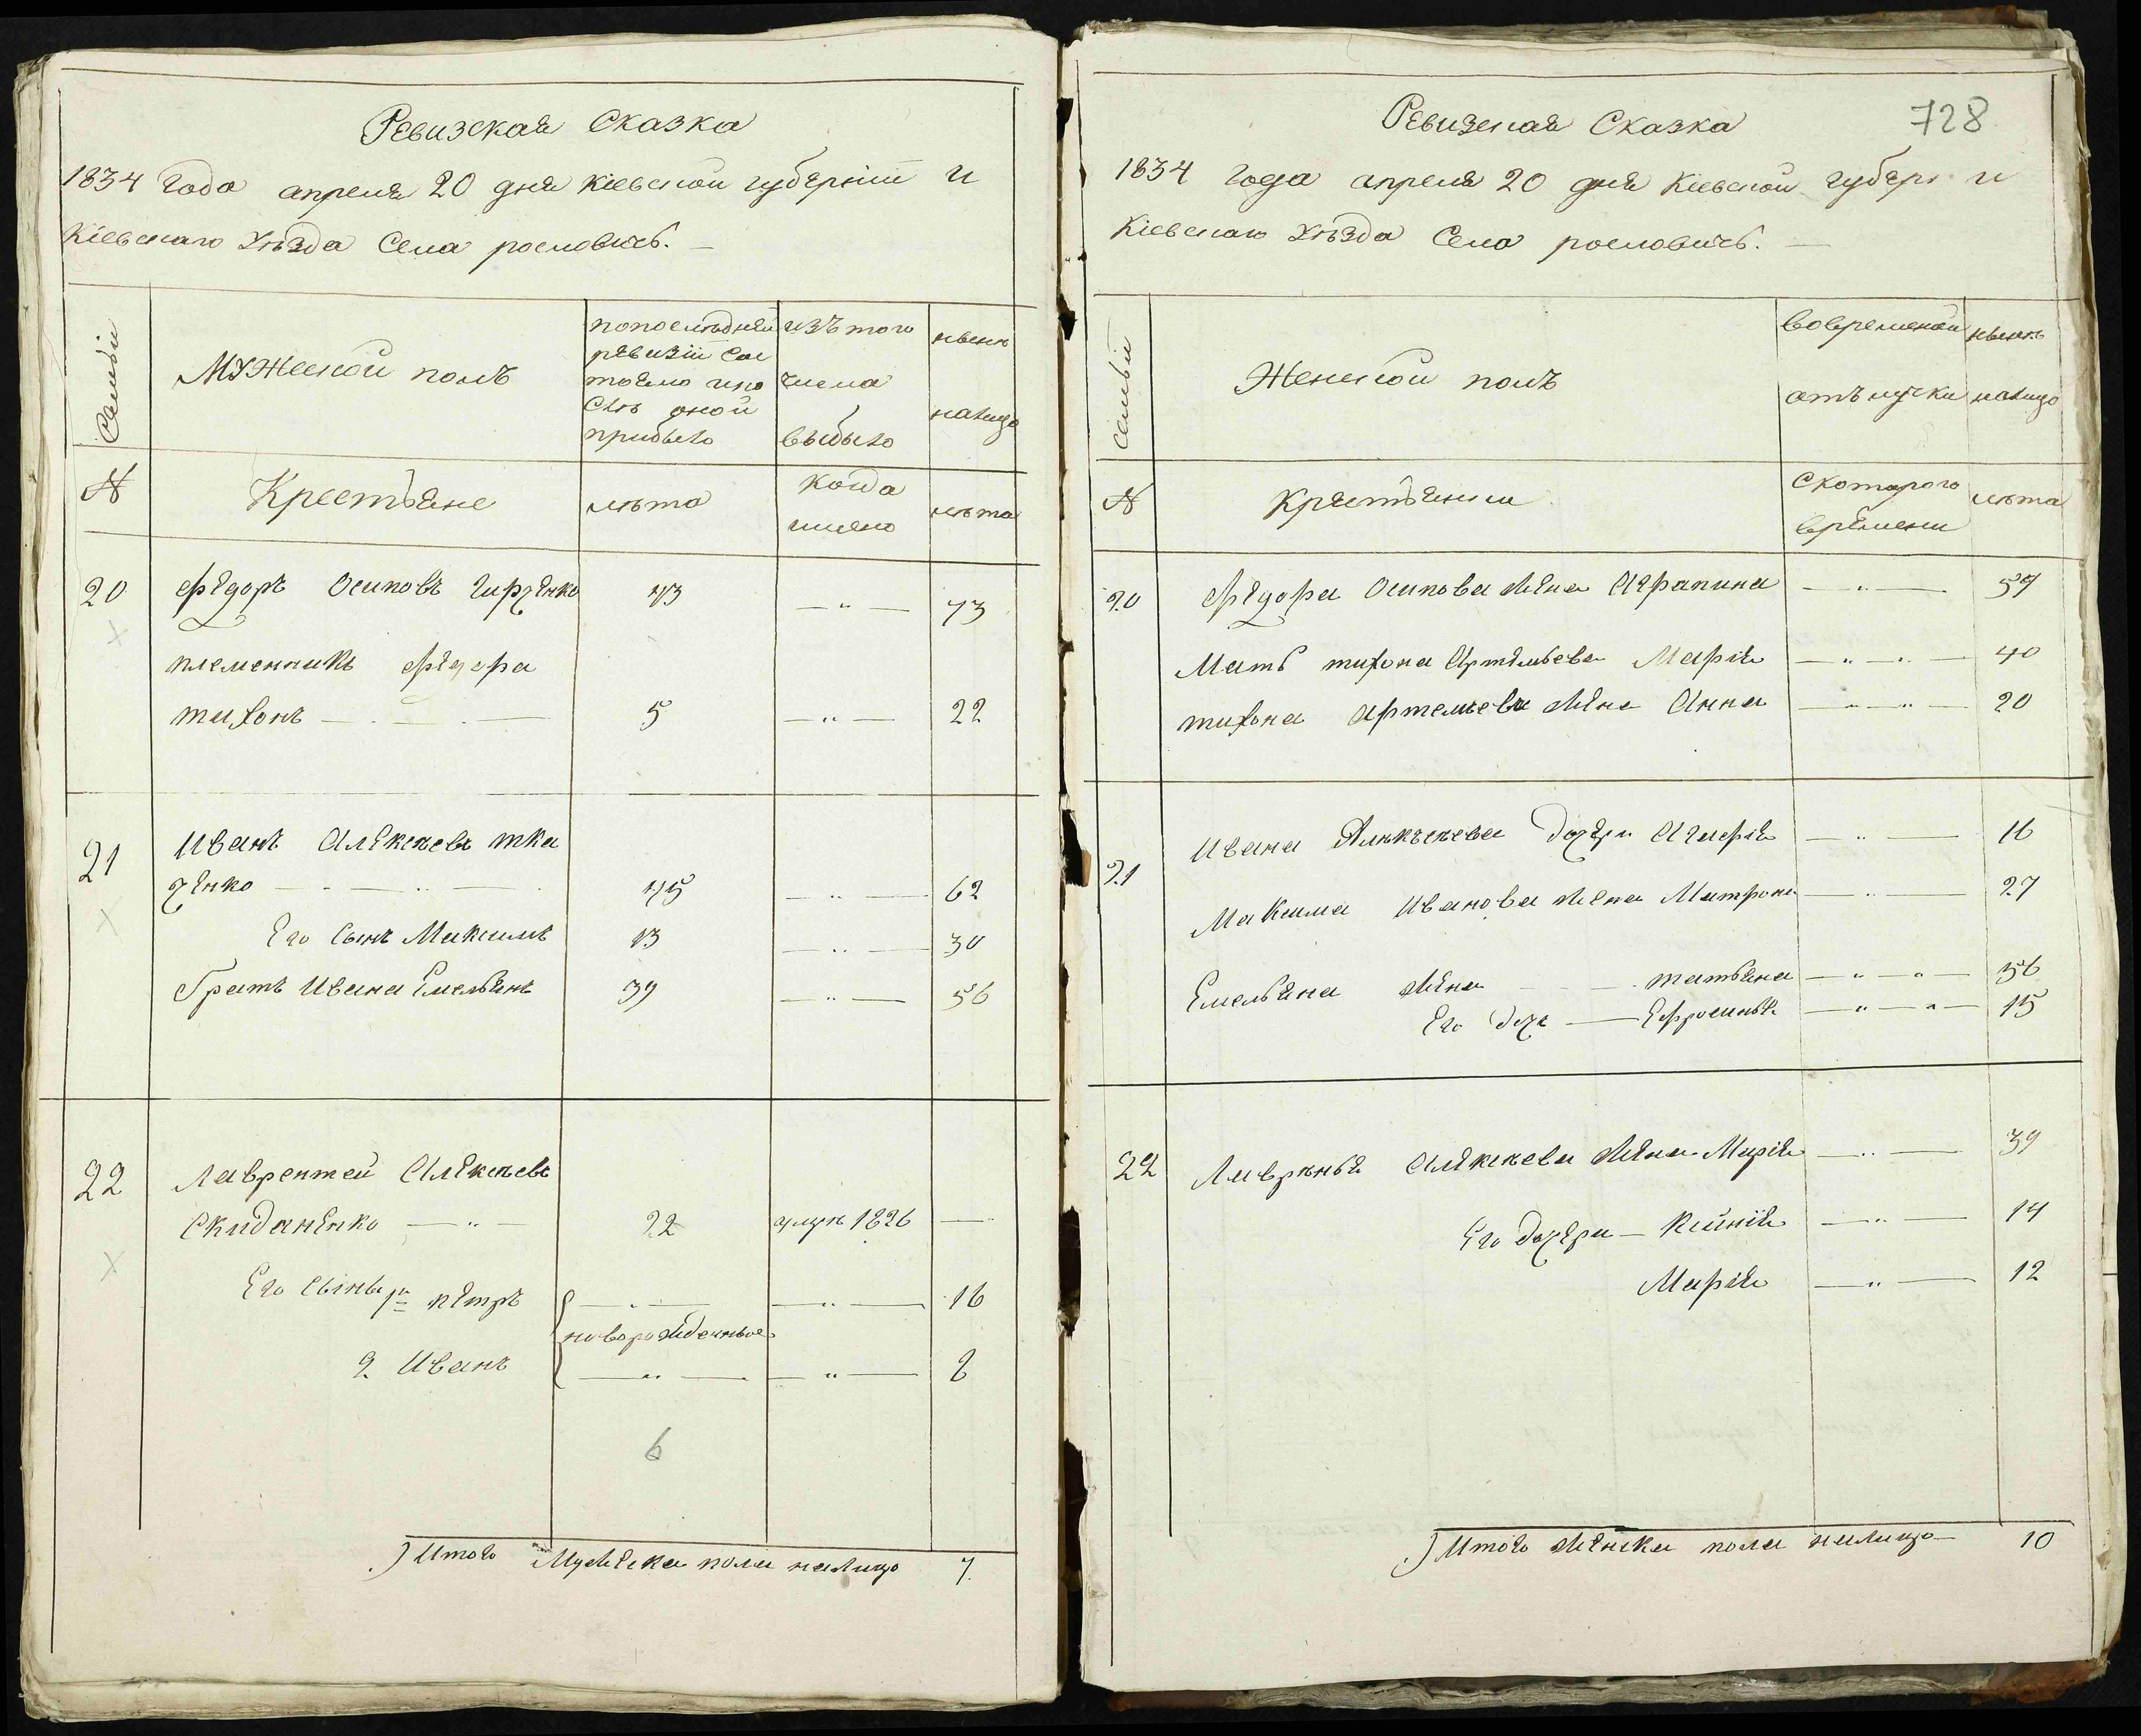 Ревизская Сказка
1834 Года апреля 20 дня Кіевской губерніи и
Кіевскаго Уѣзда Села рословичъ. —
Семьи
Мужеской полъ
попослѣдней
ревизіи сос
тояло ипо
слѣ оной
прибыло
изътого
числа
выбыло
нынѣ
налицо
№
Крестьяне
лѣта
когда
имяно
лѣта
20
Федоръ Осиповъ
43
— " —
73
племенникъ Федора
тихонъ — . — . —
5
— " —
22
21
Иванъ Алексѣевъ тка
ченко — . — . . —
45
— " —
62
Его Сынъ Максимъ
13
— " —
30
Братъ Ивана Емельянъ
39
— " —
56
22
Лаврентей Алексѣевъ
Скиданенко — " —
22
1826
—
Его Сыновья петръ
— " —
— " —
16
новорожденные
2. Иванъ
— " —
— " —
8
6
Итого Мужеска пола налицо 7.
728
Ревизская Сказка
1834 Года апреля 20 дня Кіевской губер. и
Кіевскаго Уѣзда Села рословичъ. —
Семьи
Женской полъ
вовременой
отълучки
нынѣ
налицо
№
Крестьянки
Скоторого
времени
лѣта
20
Федора Осипова жена Аграпина — " — 57
Мать тихона Артемьева Марія — " — " — 40
тихона Артемьева жена Анна — " — " — 20
21
Ивана Алексѣева дочери — " — 16
Максима Иванова жена Матрона — " — 27
Емельяна жена — — . татьяна — " — " — 56
Его дочь — Ефросинья — " — " — 15
22
Алексѣева жена Марія — " — 39
Его дочери — Ксинія — " — 14
Марія — " — 12
Итого женска пола налицо 10